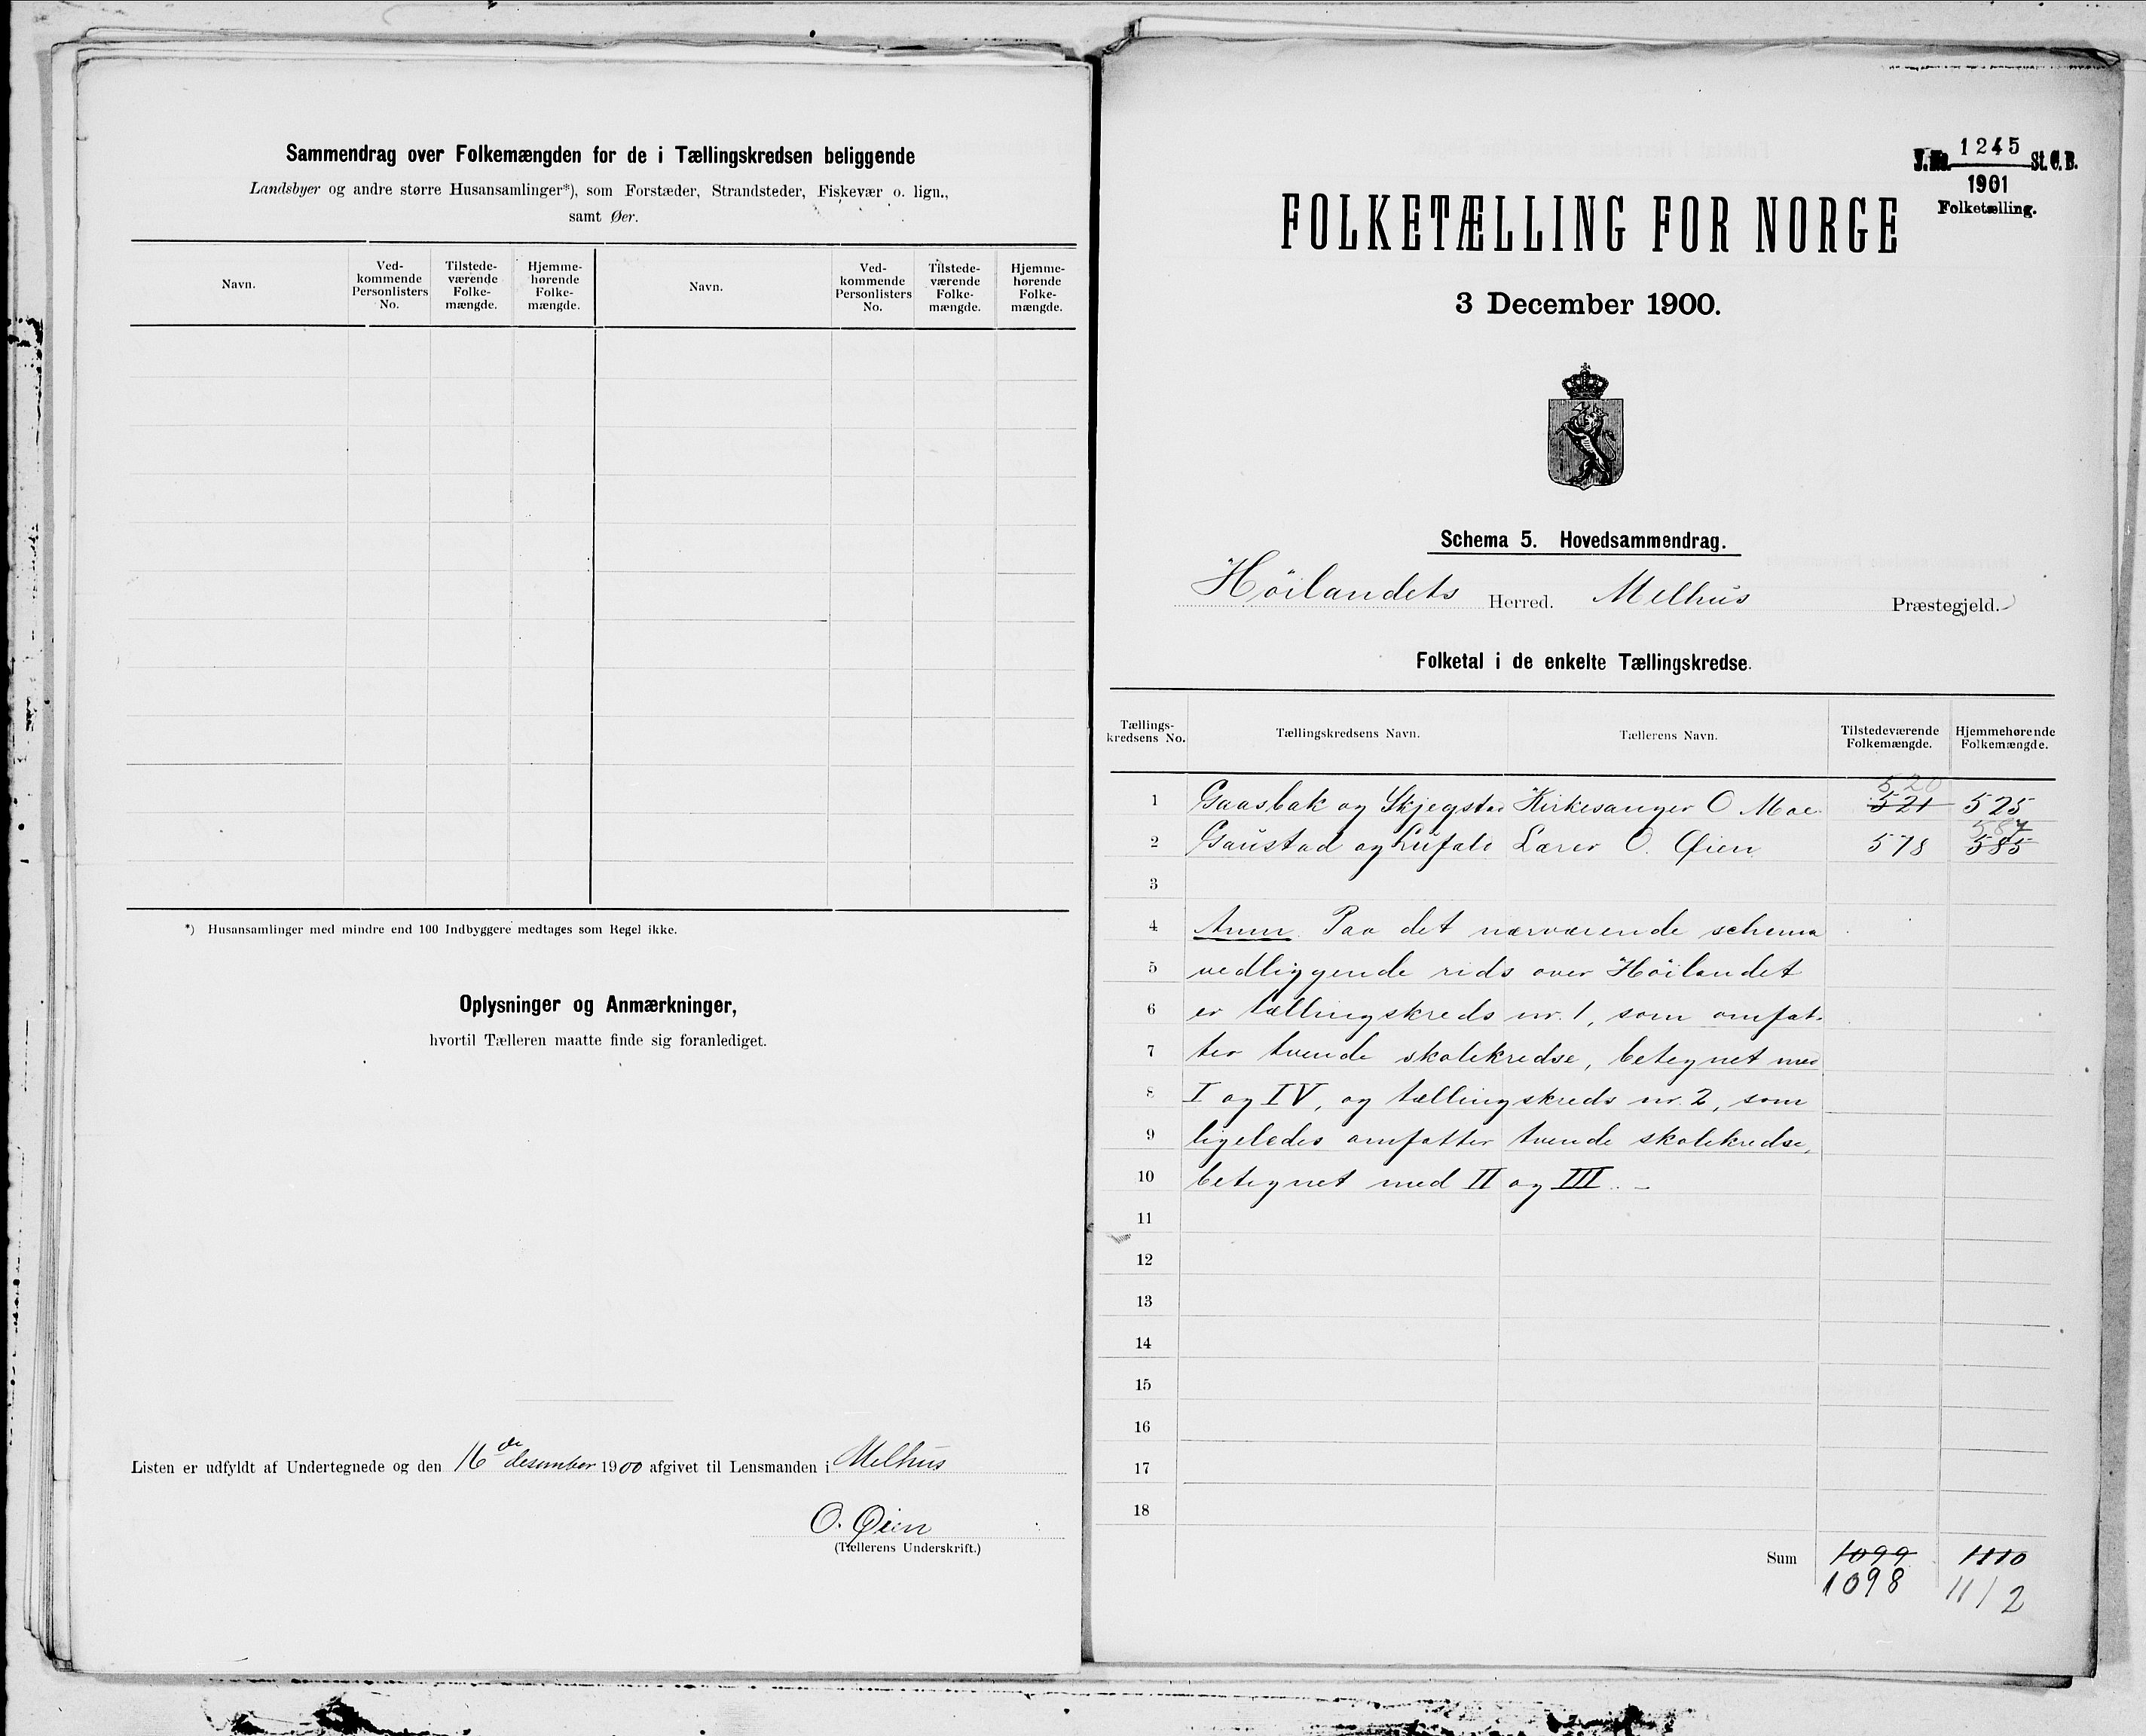 Sammendrag over Folkemængden for de i Tællingskredsen beliggende
Landsbyer og andre større Husansamlinger*), som Forstæder, Strandsteder, Fiskevær o. lign.,
samt Øer.
Navn. Ved-kommende Personlisters No. Tilstede-værende Folke-mængde. Hjemme-hørende Folke-mængde. Navn. Ved-kommende Personlisters No. Tilstede-værende Folke-mængde. Hjemme-hørende Folke-mængde.
*) Husansamlinger med mindre end 100 Indbyggere medtages som Regel ikke.
Oplysninger og Anmærkninger,
hvortil Tælleren maatte finde sig foranlediget.
Listen er udfyldt af Undertegnede og den 16de desember 1900 afgivet til Lensmanden i Melhus
O. Øien
(Tællerens Underskrift.)
J. No. 1245 St. C. B.
1901
Folketælling.
FOLKETÆLLING FOR NORGE
3 December 1900.
Schema 5. Hovedsammendrag.
Höilandets Herred. Melhus Præstegjeld.
Folketal i de enkelte Tællingskredse.
Tællings-kredsens No. Tællingskredsens Navn. Tællerens Navn. Tilstedeværende Folkemængde. Hjemmehørende Folkemængde.
520
1 Gaasbak og Skjegstad Kirkesanger O Moe 521 525
587
2 Gaustad og Lufald Lærer O. Øien 578 585
3
4 Anm. Paa det nærværende schema
5 vedliggende rids over Höilandet
6 er tællingskreds nr. 1, som omfat-
7 ter tvende skolekredse, betegnet med
8 I og IV, og tællingskreds nr. 2, som
9 ligeledes omfatter tvende skolekredse,
10 betegnet med II og III. –
11
12
13
14
15
16
17
18
Sum 1099 1110
1098 1112